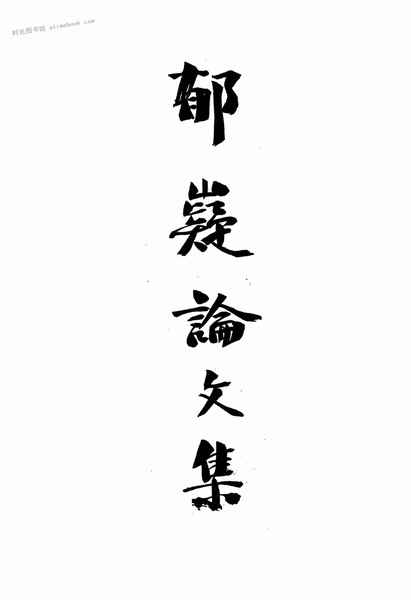 时光图书馆 altmebook.com
郁嶷論文集